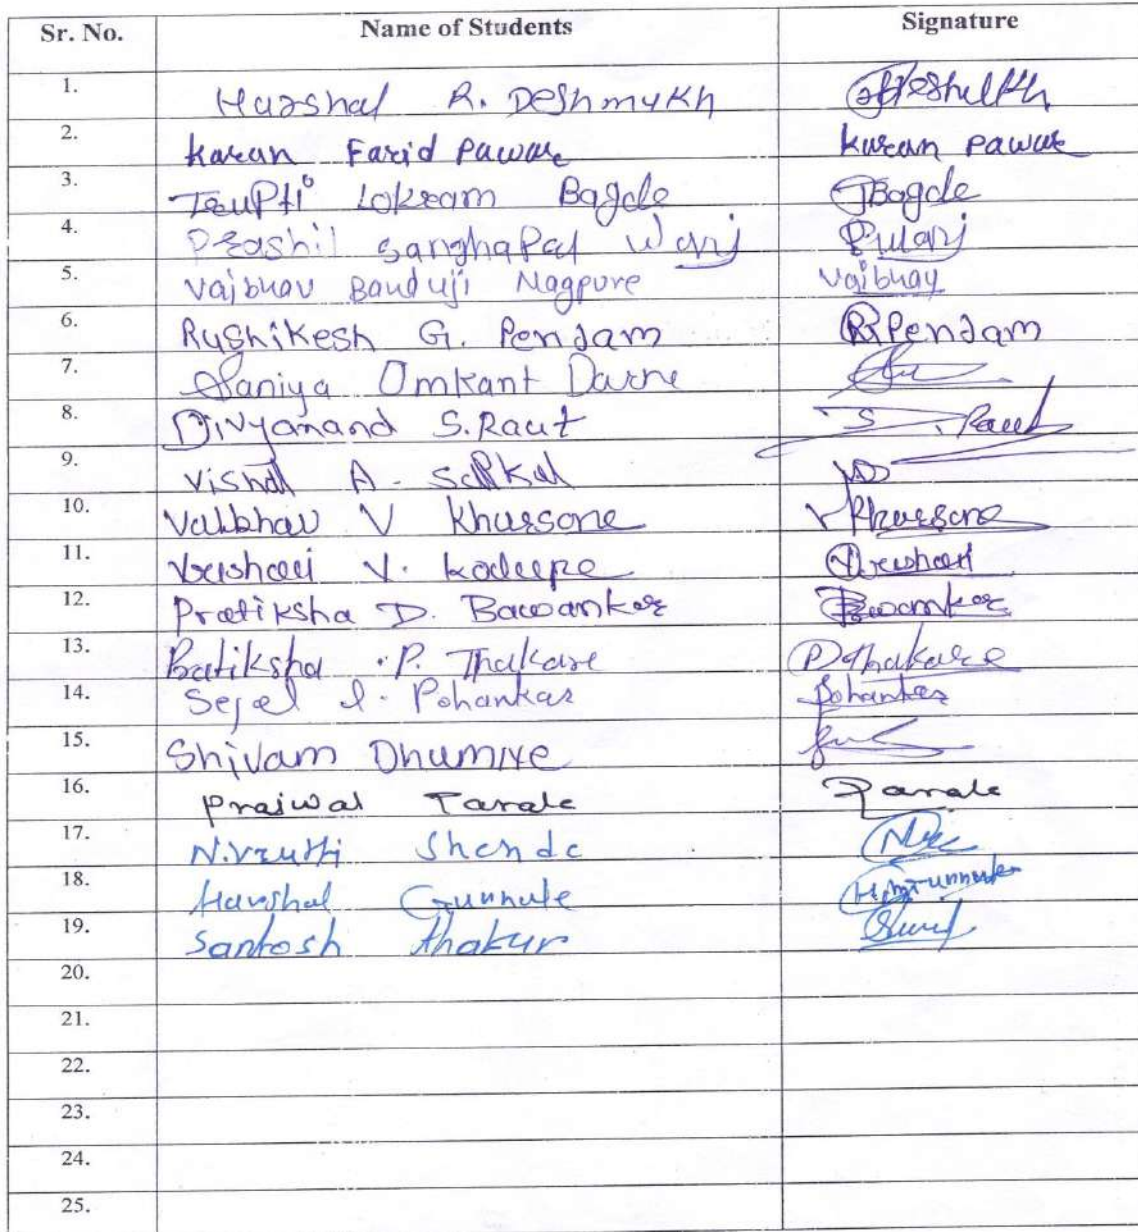 Sr. No. Name of Students Signature
1. Harshal R. Deshmukh
2. Karan Farid Pawar Karan Pawar
3. Trupti Lokram Bagde TBagde
4. Prashil Sanghapal Wanj P.Wanj
5. Vaibhav Banduji Nagpure Vaibhav
6. Rushikesh G. Pendam RPendam
7. Saniya Omkant Darne
8. Divyanand S. Raut S. D. Raut
9. Vishal A. Sapkal
10. Vaibhav V Khursone V Khursone
11. Vaishali V. Kodupe
12. Pratiksha D. Bawankar Bawankar
13. Pratiksha P. Thakare P.Thakare
14. Sejal I. Pohankar Pohankar
15. Shivam Dhumne
16. Prajwal Tarale Tarale
17. Nivrutti Shende
18. Harshal Gunnule H.M.Gunnule
19. Santosh Thakur
20.
21.
22.
23.
24.
25.